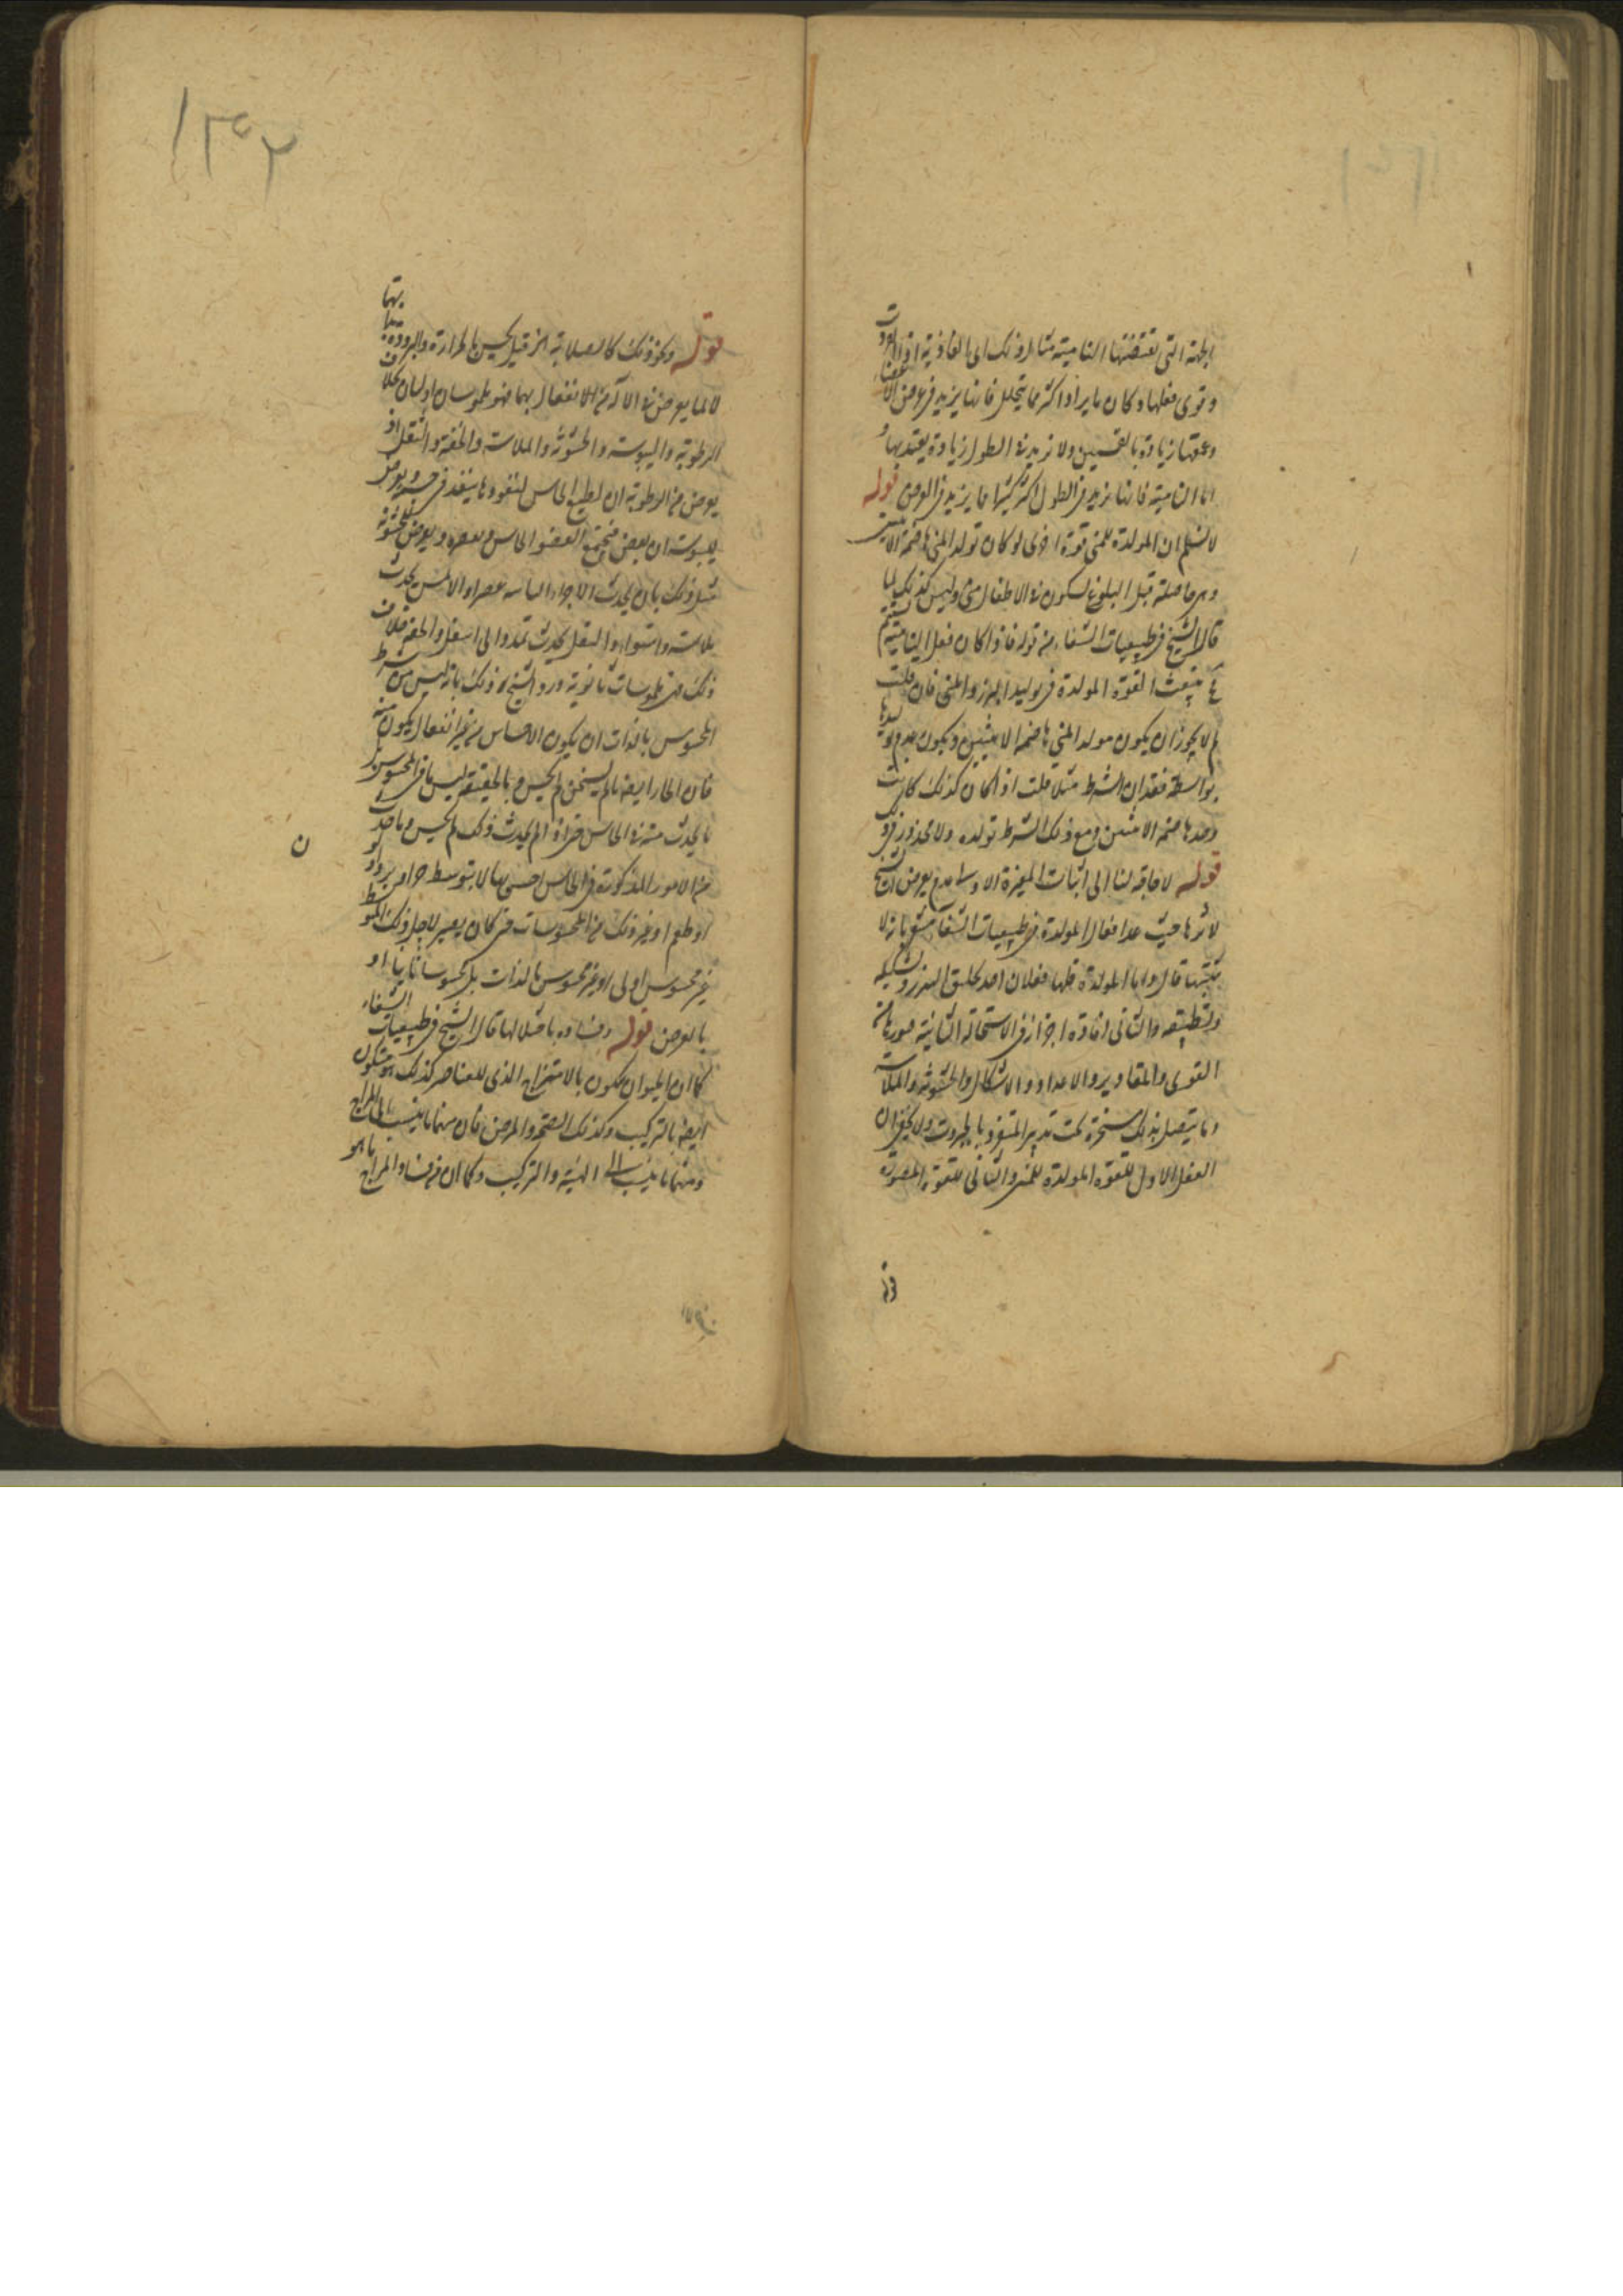 الجهة التى تقتضيها النامية مثال ذلك ان الغاذية اذا انفردت
وقوى فعلها وكان ما يرد اكثر مما يتحلل فانها يزيد فى عرض الاعضاء
وعمقها زيادة بالتسمين ولا تزيد فى الطول زيادة يعتد بها و
اما النامية فانها تزيد فى الطول اكثر كثيرا مما يزيد فى العرض قوله
لا نسلم ان المولدة للمنى قوة اخرى لو كان تولد المنى هاضمة الانثيين
وهى حاصلة قبل البلوغ لتكون فى الاطفال منى وليس كذلك لما
قال الشيخ فى طبيعيات الشفاء من قوله فاذا كان فعل النامية يستتم
تنبعث القوة المولدة فى توليد البزر والمنى فان قلت
لم لا يجوز ان يكون مولد المنى هاضمة الانثيين ويكون عدم توليدها
بواسطة فقدان الشرط مثلا قلت اذا كان كذلك كانت
وحدها هاضمة الانثيين ومع ذلك الشرط تولده ولا محذور فى ذلك
قوله لا حاجة لنا الى اثبات المغيرة الاولى عدم تعرض الشيخ
لاثرها حيث عد افعال المولدة فى طبيعيات الشفا مشعر بانه لا
يثبتها قال واما المولدة فلها فعلان احدهما تخليق البزر وتشكيله
وتطبيعه والثانى افادة اجزائه فى الاستحالة الثانية صورها من
القوى والمقادير والاعداد والاشكال والخشونة والملاسة
وما يتصل بذلك مسخرة تحت تدبير المتفرد بالجبروت ولا يخفى ان
الفعل الاول للقوة المولدة للمنى والثانى للقوة المصورة
١٣٢
قوله ونحو ذلك كالصلابة الخ قيل يحس بالحرارة والبرودة بهما
لا لما يعرض فى الآلة من الانفعال بهما فهو ملموسان اوليان بخلاف
الرطوبة واليبوسة والخشونة والملاسة والخفة والثقل اذ
يعرض من الرطوبة ان لطيع الحاس لنفوذ ما ينفذ فى جسمه ويعرض
لليبوسة ان يعرض فيجتمع العضو الحاس ويعصره ويعرض للخشونة
مثل ذلك بان يحدث الاجزاء اليابسة عصرا والاملس يحدث
ملاسة واستواء والثقل يحدث تمددا الى اسفل والخفة خلاف
ذلك فهى ملموسات ثانوية ورد الشيخ ذلك بانه ليس من شرط
المحسوس بالذات ان يكون الاحساس من غير انفعال يكون منه
فان الحار ايضا ما لم يسخن لم يحس وبالحقيقة ليس ما فى المحسوس بل
ما يحدث منه فى الحاس حتى اذا لم يحدث ذلك لم يحس وما حدث
من الامور المذكورة فى الحاس احس بها لا بتوسط حر او برد او لون
او طعم او غير ذلك من المحسوسات حتى كان يصير لاجل ذلك المتوسط
غير محسوس اولى او غير محسوس بالذات بل محسوسا ثانيا او
بالعرض قوله وفساده باختلالها قال الشيخ فى طبيعيات الشفاء
كما ان الحيوان يتكون بالامتزاج الذى للعناصر كذلك هو يتكون
ايضا بالتركيب وكذلك الصحة والمرض فان منهما ما ينسب الى المزاج
ومنهما ما ينسب الى الهيئة والتركيب وكما ان من فساد المزاج ما هو
ن